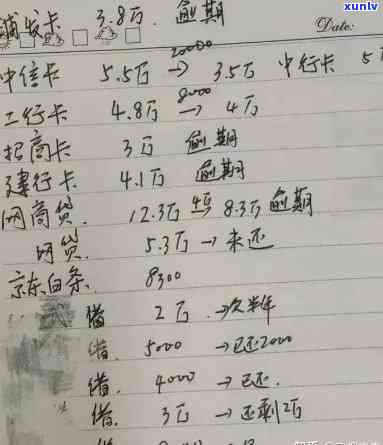 xunlv
浦发卡 3.8万 逾期
Date:
20000
中信卡 5.5万 → 3.5万 中行卡 5
8000
工行卡 4.8万 → 4万
招商卡 3万 逾期
建行卡 4.1万 逾期
网商贷. 12.3万 8.3万 逾期
网贷 5.3万 → 未还
京东白条 8300
借 2万 → 欠半年
借. 5000 → 已还2000
借 4000 → 已还.
借. 3万 → 还剩2万